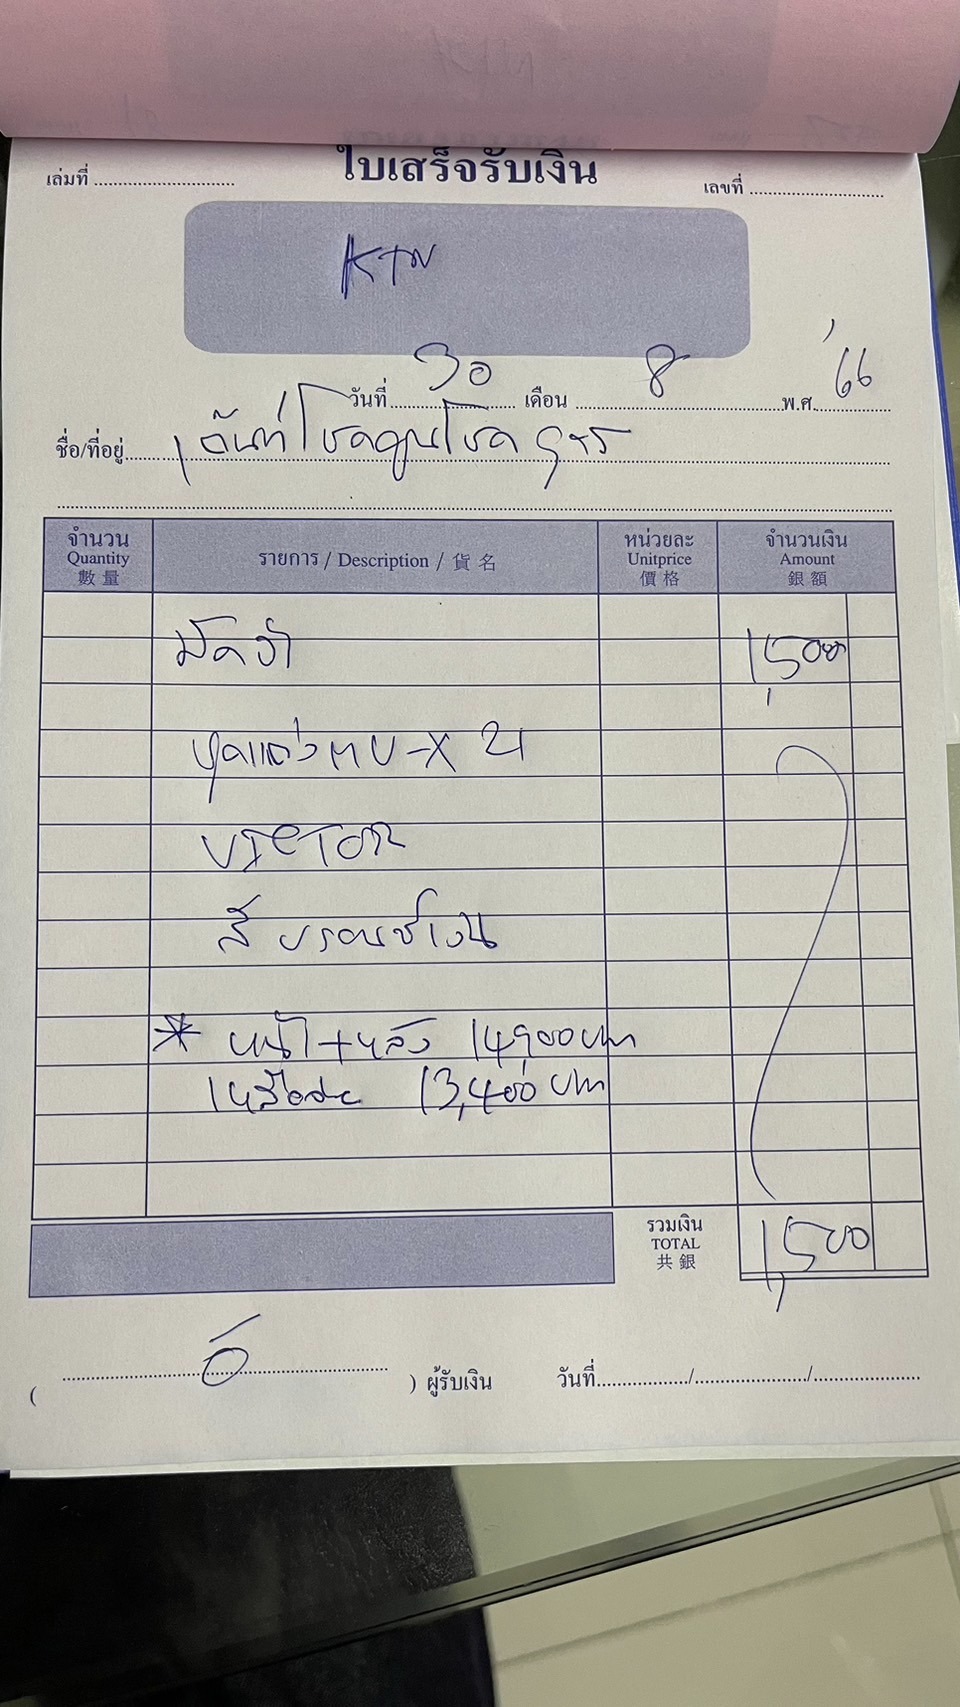 ใบเสร็จรับเงิน
เล่มที่ เลขที่
KTN
วันที่ 30 เดือน 8 พ.ศ. '66
ชื่อ/ที่อยู่
จำนวน รายการ / Description / 貨名 หน่วยละ จำนวนเงิน
Quantity Unitprice Amount
數量 價格 銀額
มัดจำ 1,500
ชุดแต่ง MU-X 21
VICTOR
สี บรอนซ์เงิน
* หน้า+หลัง 14,900 บาท
เหลือ 13,400 บาท
รวมเงิน 1,500
TOTAL
共銀
( ) ผู้รับเงิน วันที่ / /